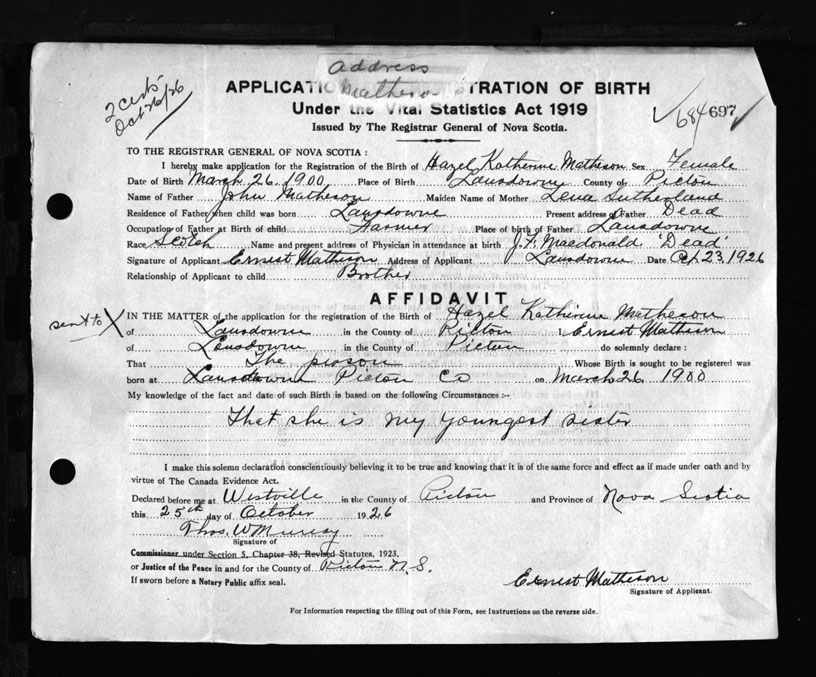 address
Matheson
2 certs
Oct 26/26
APPLICATIO STRATION OF BIRTH
Under the Vital Statistics Act 1919
Issued by The Registrar General of Nova Scotia.
684 697
TO THE REGISTRAR GENERAL OF NOVA SCOTIA :
I hereby make application for the Registration of the Birth of Hazel Katherine Matheson Sex Female
Date of Birth March 26. 1900 Place of Birth Lansdowne County of Pictou
Name of Father John Matheson Maiden Name of Mother Lena Sutherland
Residence of Father when child was born Lansdowne Present address of Father Dead
Occupation of Father at Birth of child Farmer Place of birth of Father Lansdowne
Race Scotch Name and present address of Physician in attendance at birth J. F. Macdonald 'Dead'
Signature of Applicant Ernest Matheson Address of Applicant Lansdowne Date Oct 23, 1926
Relationship of Applicant to child Brother
AFFIDAVIT
sent to X
IN THE MATTER of the application for the registration of the Birth of Hazel Katherine Matheson
of Lansdowne in the County of Pictou I, Ernest Matheson
of Lansdowne in the County of Pictou do solemnly declare :
That The person Whose Birth is sought to be registered was
born at Lansdowne Pictou Co on March 26 1900
My knowledge of the fact and date of such Birth is based on the following Circumstances :-
That she is my youngest sister
I make this solemn declaration conscientiously believing it to be true and knowing that it is of the same force and effect as if made under oath and by
virtue of The Canada Evidence Act.
Declared before me at Westville in the County of Pictou and Province of Nova Scotia
this 25th day of October 1926
Thos. W Murray
Signature of
Commissioner under Section 5, Chapter 38, Revised Statutes, 1923,
or Justice of the Peace in and for the County of Pictou N. S.
If sworn before a Notary Public affix seal.
Ernest Matheson
Signature of Applicant.
For Information respecting the filling out of this Form, see Instructions on the reverse side.